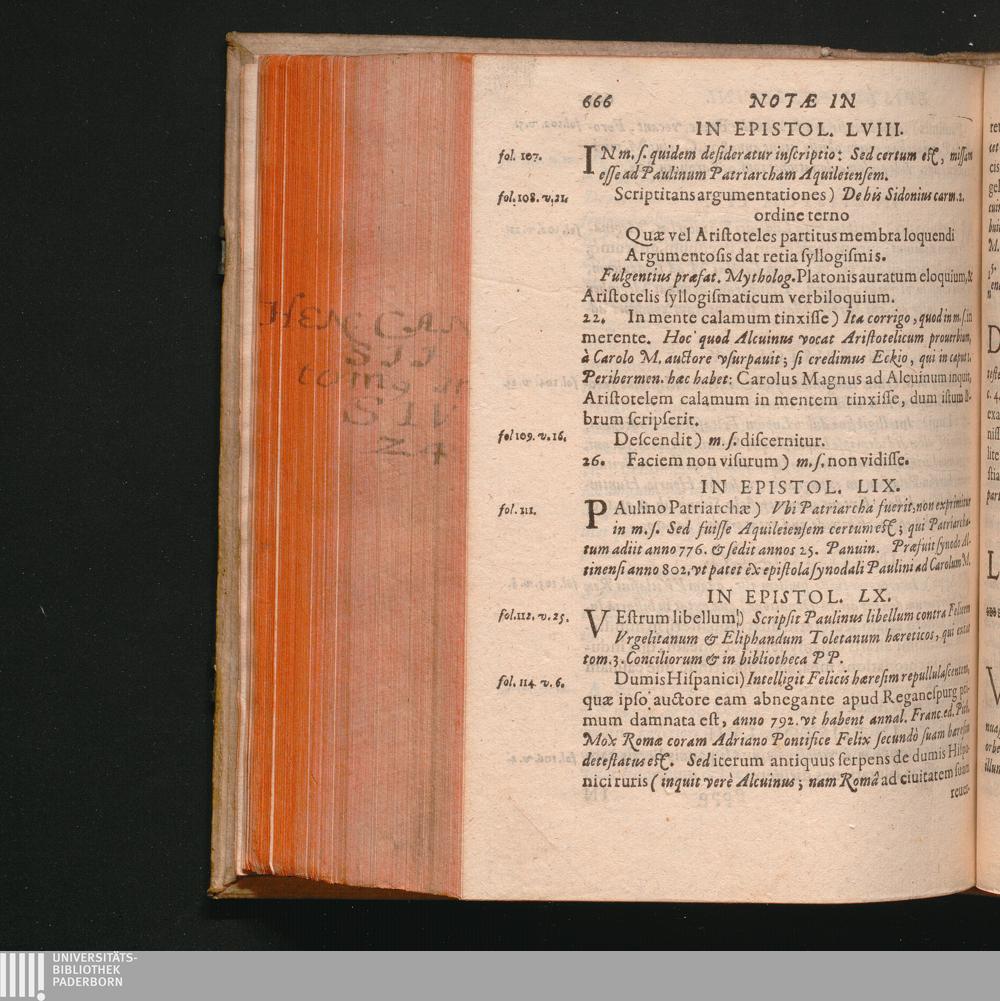 666 NOTÆ IN
IN EPISTOL. LVIII.
fol. 107. IN m. ſ. quidem deſideratur inſcriptio: Sed certum eſt, miſſam
eſſe ad Paulinum Patriarcham Aquileienſem.
fol. 108. v. 21. Scriptitans argumentationes) De his Sidonius carm. 2.
ordine terno
Quæ vel Ariſtoteles partitus membra loquendi
Argumentoſis dat retia ſyllogiſmis.
Fulgentius præfat. Mytholog. Platonis auratum eloquium, &
Ariſtotelis ſyllogiſmaticum verbiloquium.
22. In mente calamum tinxiſſe) Ita corrigo, quod in m. ſ. in
merente. Hoc quod Alcuinus vocat Ariſtotelicum prouerbium,
à Carolo M. auctore vſurpauit; ſi credimus Eckio, qui in caput 1.
Perihermen. hæc habet: Carolus Magnus ad Alcuinum inquit,
Ariſtotelem calamum in mentem tinxiſſe, dum iſtum li-
brum ſcripſerit.
fol 109. v. 16. Deſcendit) m. ſ. diſcernitur.
26. Faciem non viſurum) m. ſ. non vidiſſe.
IN EPISTOL. LIX.
fol. 111. PAulino Patriarchæ) Vbi Patriarcha fuerit, non exprimitur
in m. ſ. Sed fuiſſe Aquileienſem certum eſt; qui Patriarcha-
tum adiit anno 776. & ſedit annos 25. Panuin. Præfuit ſynodo Al-
tinenſi anno 802. vt patet ex epiſtola ſynodali Paulini ad Carolum M.
IN EPISTOL. LX.
fol. 112. v. 25. VEſtrum libellum) Scripſit Paulinus libellum contra Felicem
Vrgelitanum & Eliphandum Toletanum hæreticos, qui extat
tom. 3. Conciliorum & in bibliotheca PP.
fol. 114 v. 6. Dumis Hiſpanici) Intelligit Felicis hæreſim repullulaſcentem,
quæ ipſo auctore eam abnegante apud Reganeſpurg pri-
mum damnata eſt, anno 792. vt habent annal. Franc. ed. Pith.
Mox Romæ coram Adriano Pontifice Felix ſecundò ſuam hæreſim
deteſtatus eſt. Sed iterum antiquus ſerpens de dumis Hiſpa-
nici ruris (inquit verè Alcuinus; nam Româ ad ciuitatem ſuam
reuer-
HEN CAN
SII
S IV
24
UNIVERSITÄTS-
BIBLIOTHEK
PADERBORN